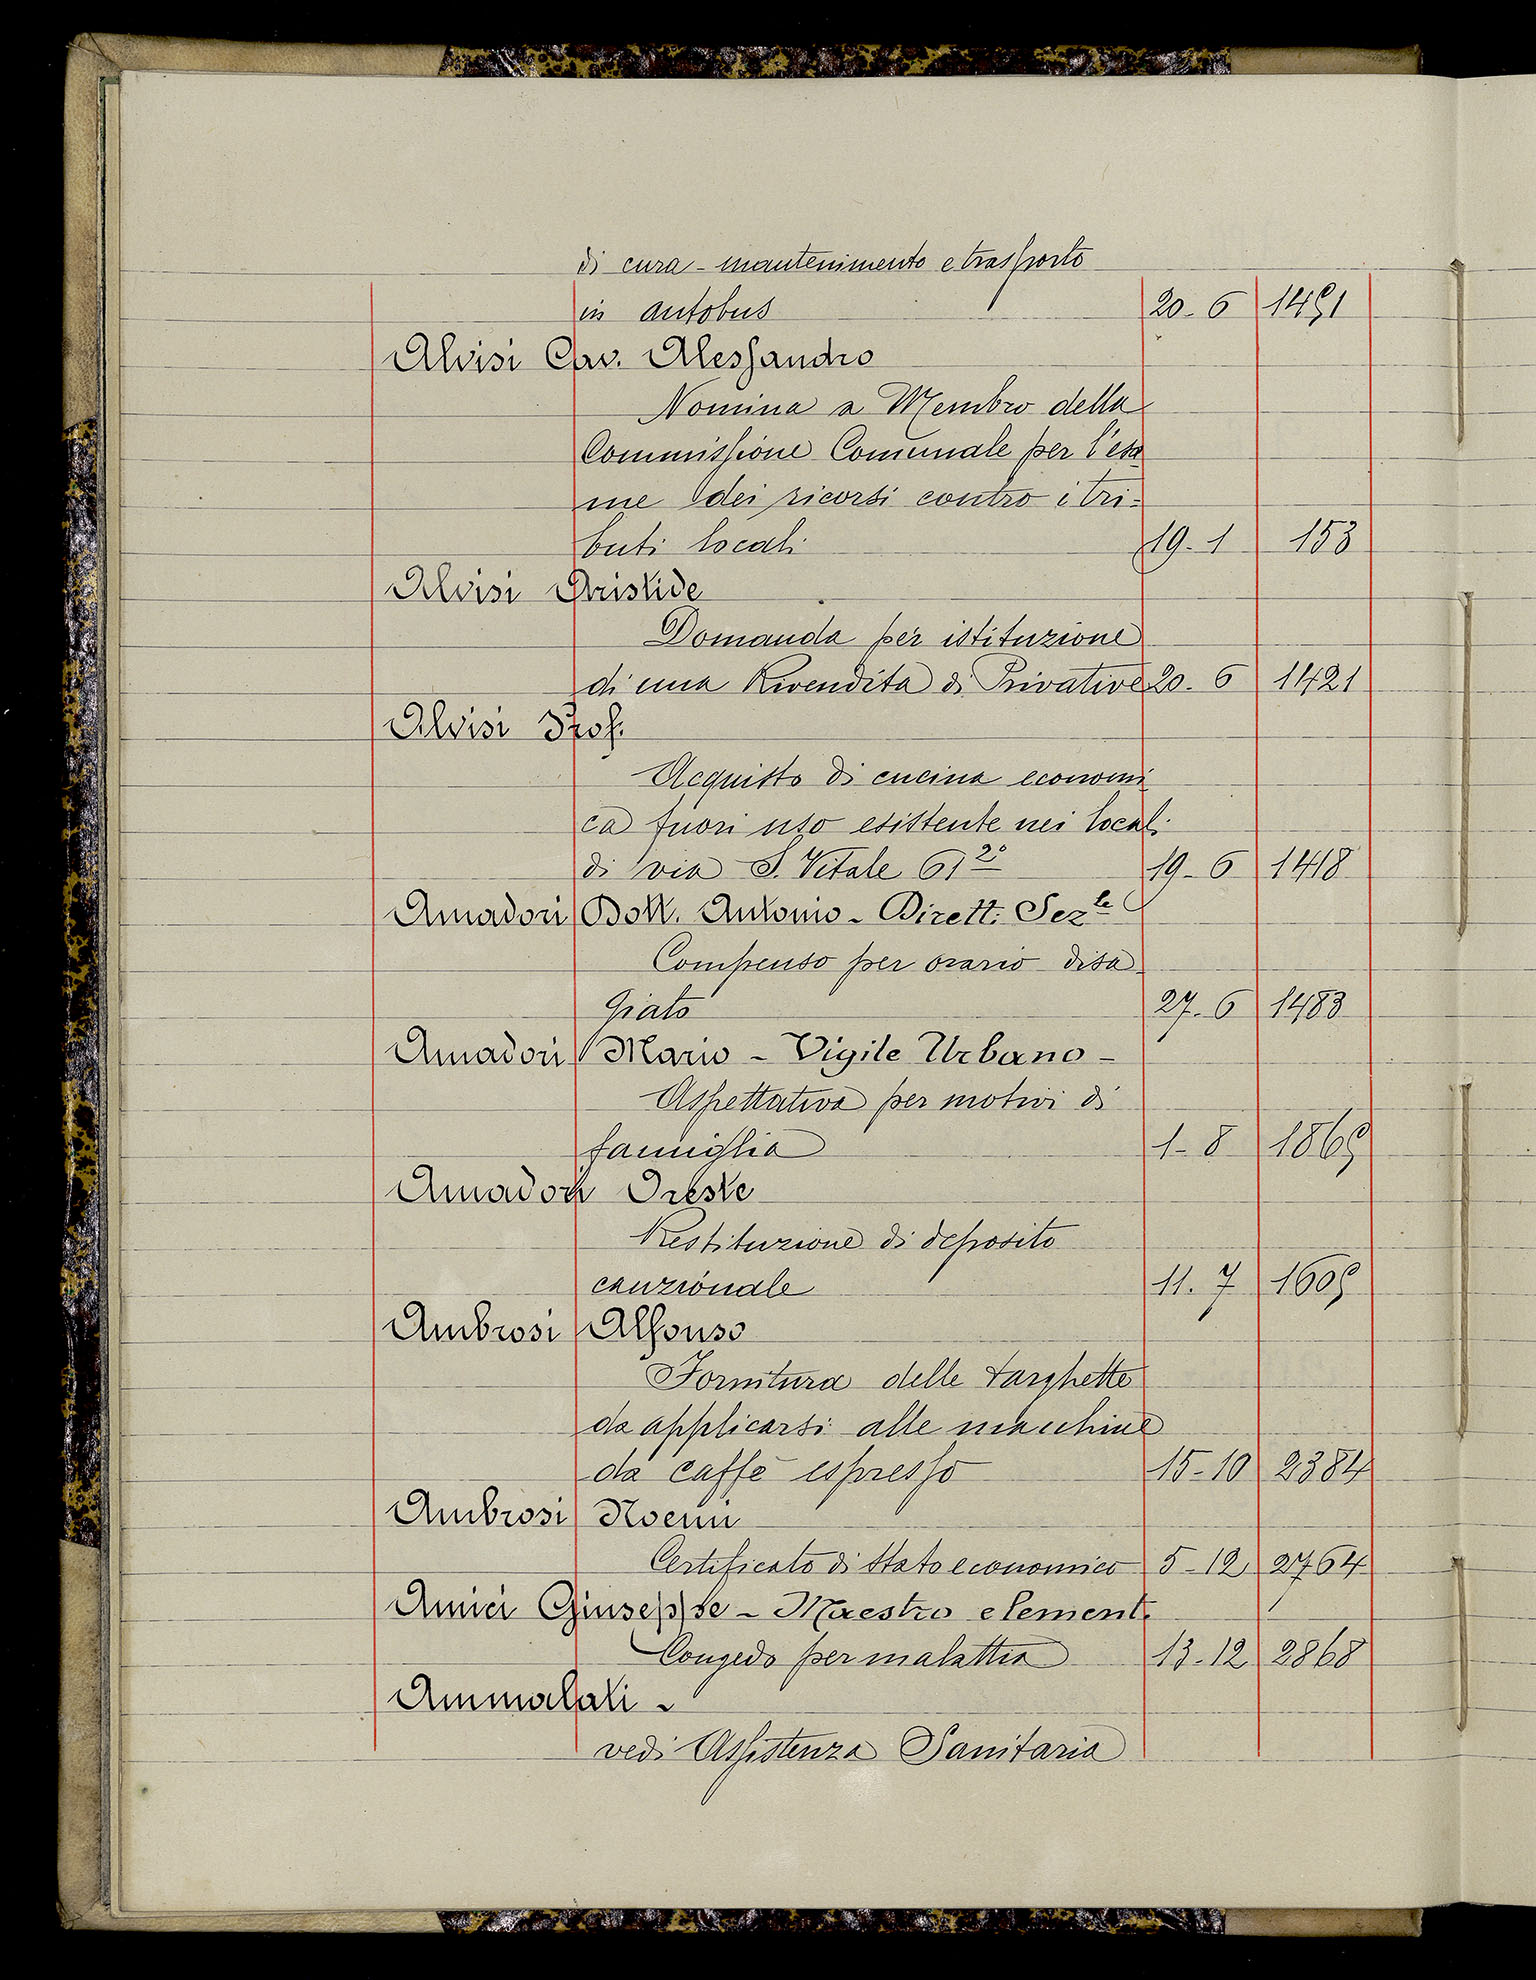 di cura - mantenimento e trasporto
in autobus 20-6 1451
Alvisi Cav. Alessandro
Nomina a Membro della
Commissione Comunale per l'esa
me dei ricorsi contro i tri=
buti locali 19-1 153
Alvisi Aristide
Domanda per istituzione
di una Rivendita di Privative 20-6 1421
Alvisi Prof.
Acquisto di cucina economi
ca fuori uso esistente nei locali
di via S. Vitale 61 2° 19-6 1418
Amadori Dott. Antonio - Dirett. Sez.le
Compenso per orario disa
giato 27-6 1483
Amadori Mario - Vigile Urbano -
Aspettativa per motivi di
famiglia 1-8 1865
Amadori Oreste
Restituzione di deposito
cauzionale 11.7 1605
Ambrosi Alfonso
Fornitura delle targhette
da applicarsi alle macchine
da caffè espresso 15-10 2384
Ambrosi Noemi
Certificato di stato economico 5-12 2764
Amici Giuseppe - Maestro element.
Congedo per malattia 13-12 2868
Ammalati -
vedi Assistenza Sanitaria